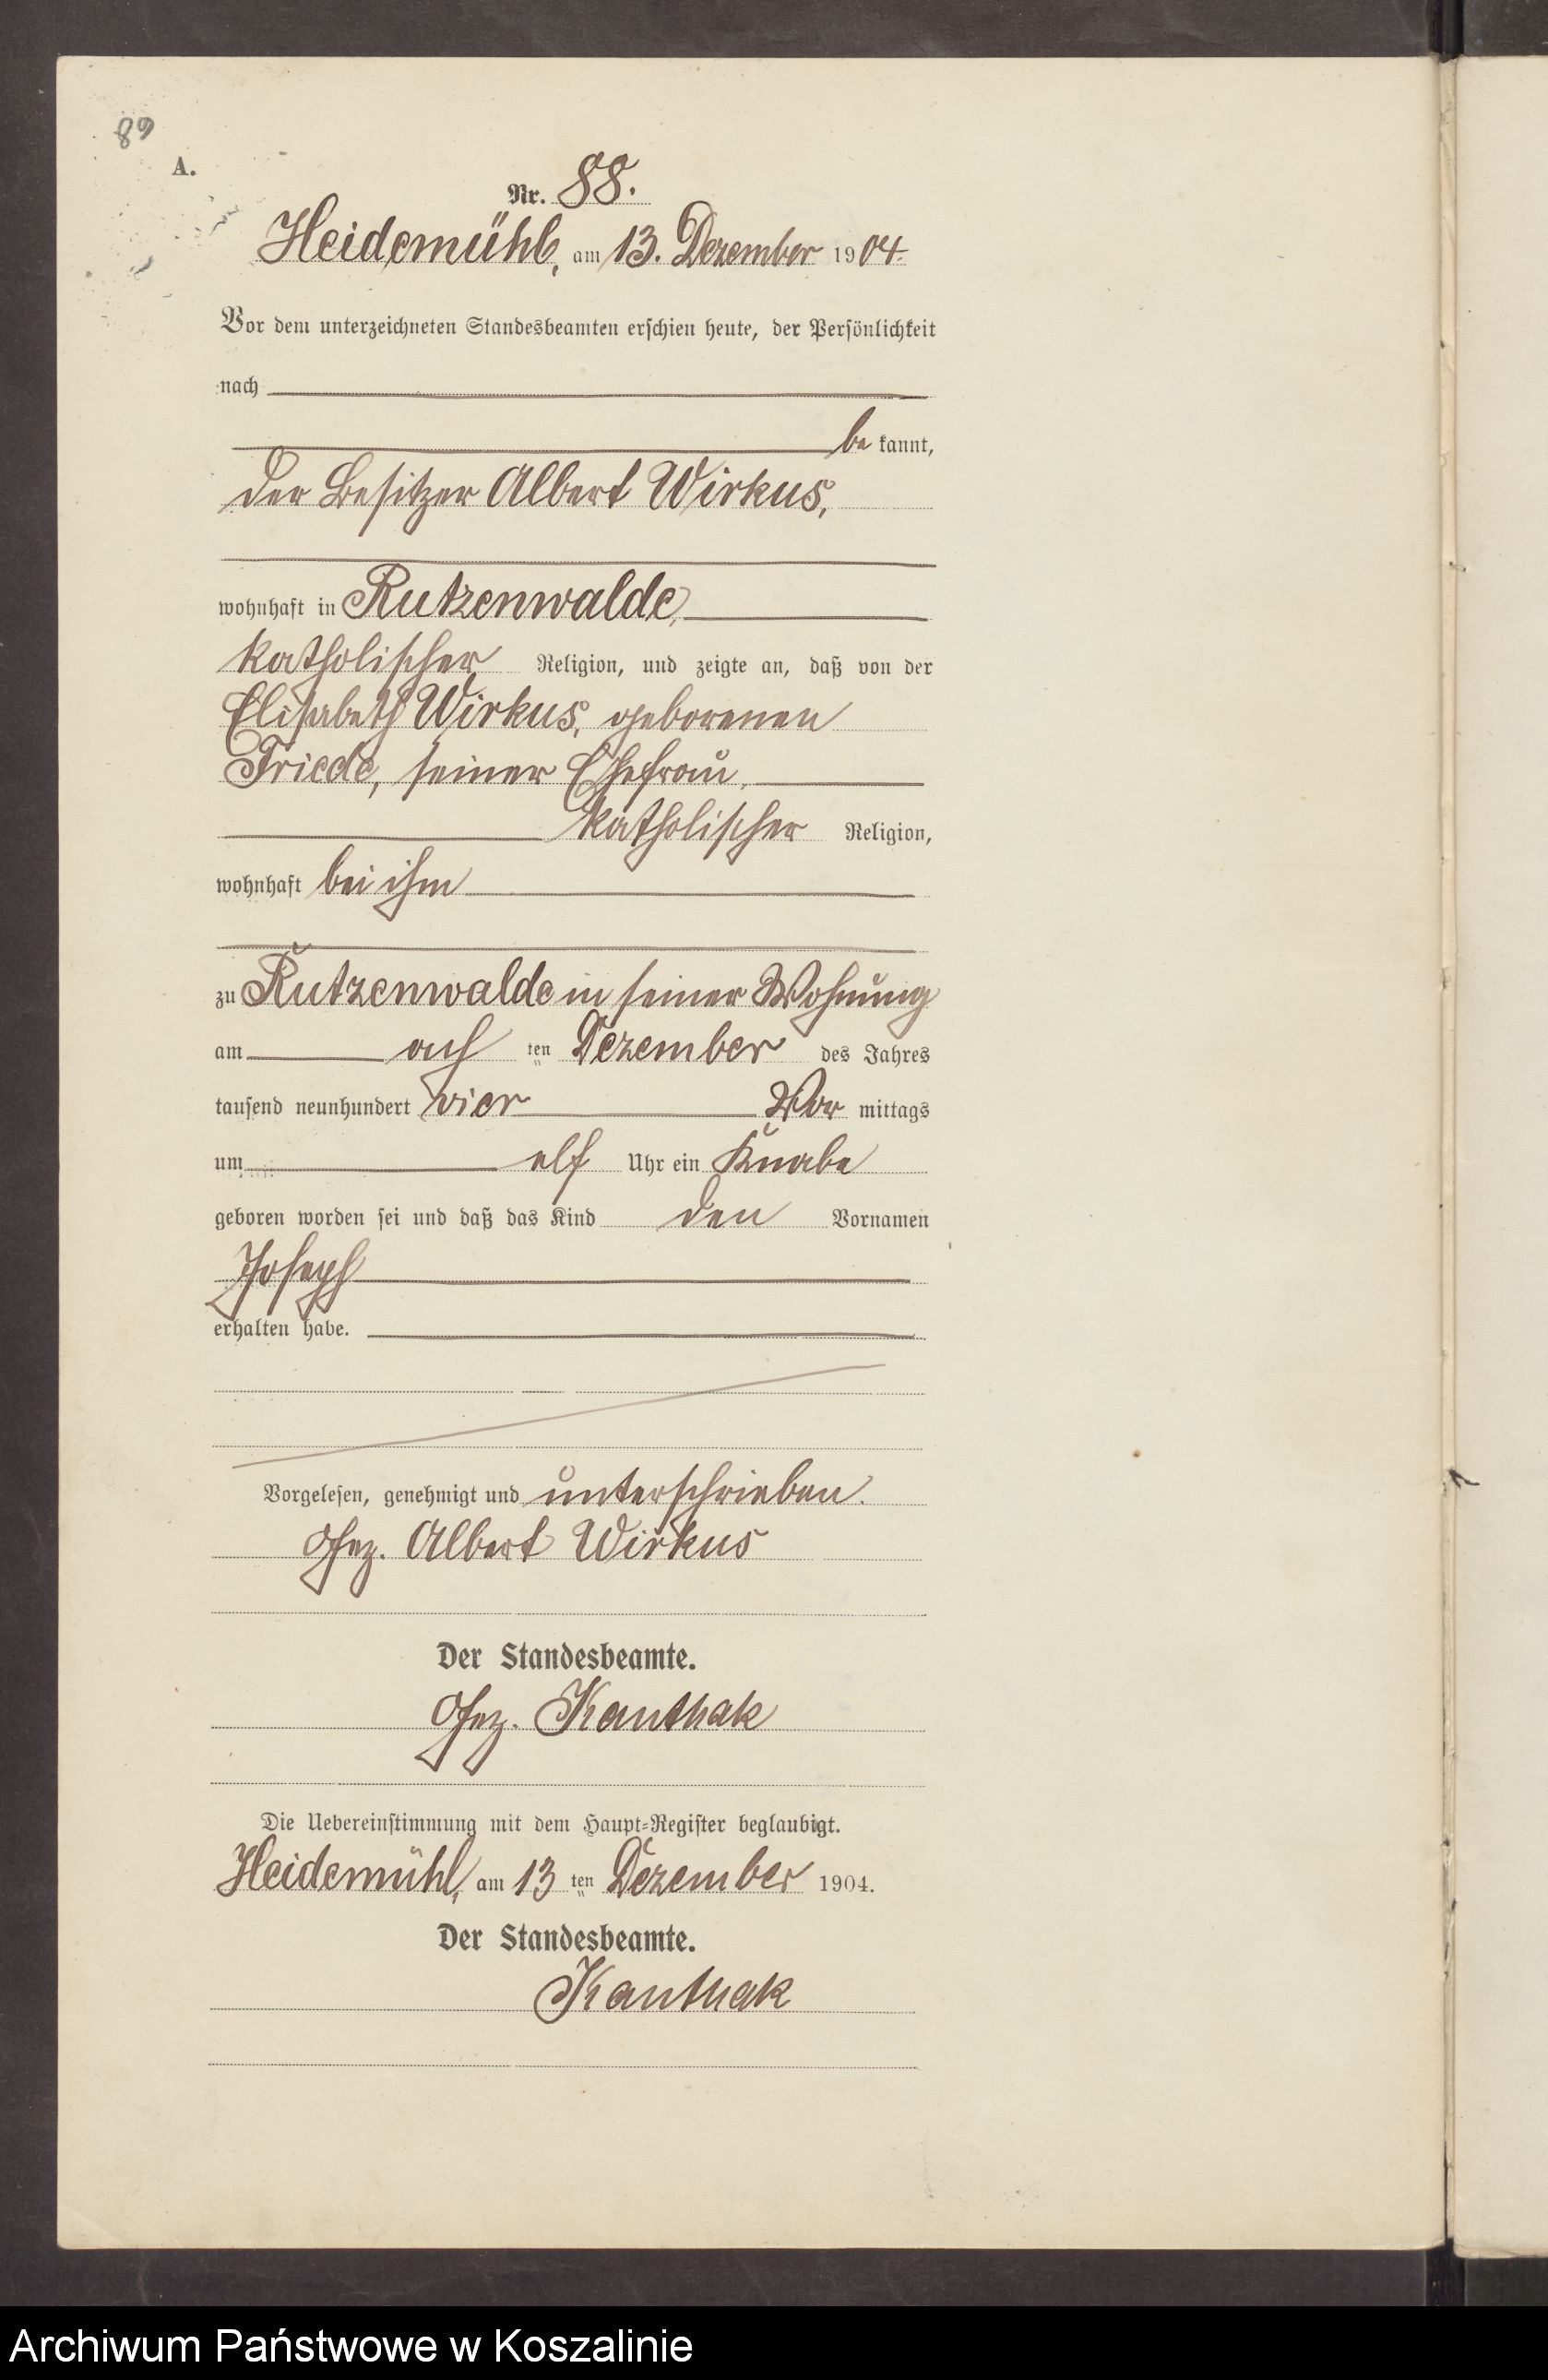 89
A.
Nr. 88.
Heidemühl, am 13. Dezember 1904.
Vor dem unterzeichneten Standesbeamten erschien heute, der Persönlichkeit
nach
be kannt,
der Besitzer Albert Wirkus,
wohnhaft in Rutzenwalde,
katholischer Religion, und zeigte an, daß von der
Elisabeth Wirkus, geborenen
Friede, seiner Ehefrau,
katholischer Religion,
wohnhaft bei ihm
zu Rutzenwalde in seiner Wohnung
am ach ten Dezember des Jahres
tausend neunhundert vier Vor mittags
um elf Uhr ein Knabe
geboren worden sei und daß das Kind den Vornamen
Joseph
erhalten habe.
Vorgelesen, genehmigt und unterschrieben.
Gez. Albert Wirkus
Der Standesbeamte.
Gez. Kanthak
Die Uebereinstimmung mit dem Haupt-Register beglaubigt.
Heidemühl, am 13 ten Dezember 1904.
Der Standesbeamte.
Kanthak
Archiwum Państwowe w Koszalinie